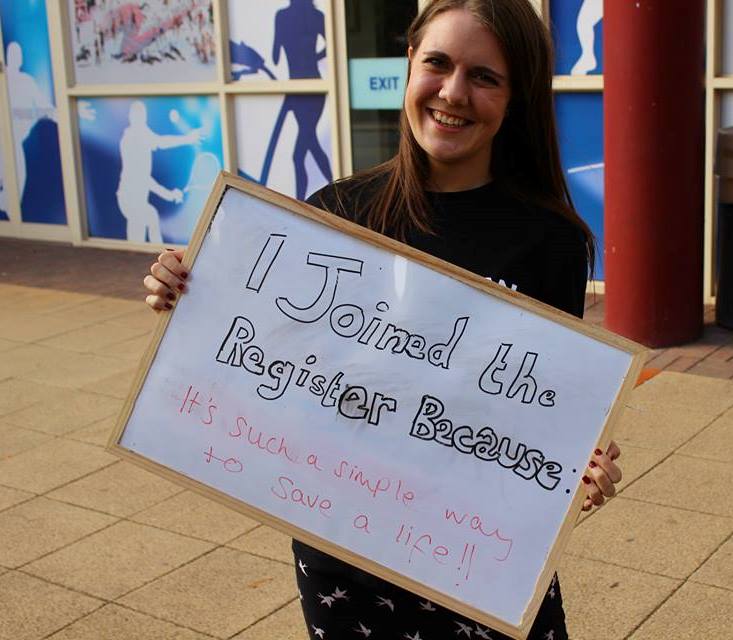 EXIT
I Joined the
Register Because:
It's such a simple way
to save a life!!